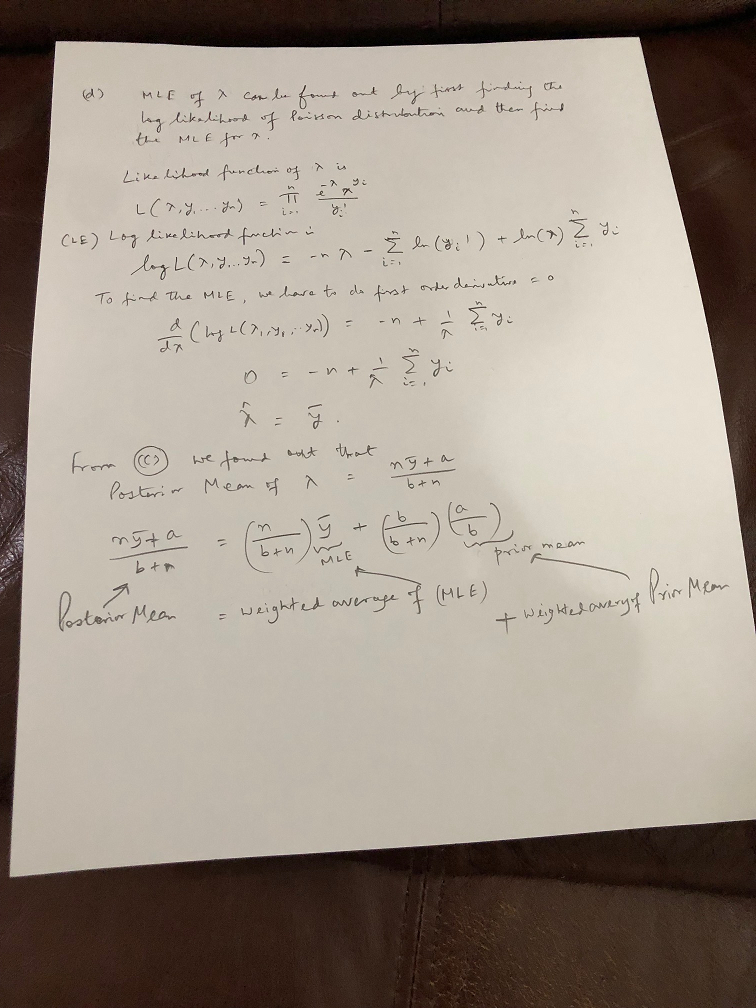 (d) MLE of λ can be found out by first finding the
log likelihood of Poisson distribution and then find
the MLE for λ.
Likelihood function of λ is
L(λ, y, ... yn) = ∏_{i=1}^{n} e^{-λ} λ^{yi} / yi!
(LE) Log likelihood function is
log L(λ, y, .. yn) = -nλ - ∑_{i=1}^{n} ln(yi!) + ln(λ) ∑_{i=1}^{n} yi
To find the MLE, we have to do first order derivative = 0
d/dλ (log L(λ, y, .. yn)) = -n + 1/λ ∑_{i=1}^{n} yi
0 = -n + 1/λ ∑_{i=1}^{n} yi
λ̂ = ȳ.
From (C) we found out that
Posterior Mean of λ = (nȳ + a)/(b+n)
(nȳ + a)/(b+n) = (n/(b+n)) ȳ + (b/(b+n)) (a/b)
MLE prior mean
Posterior Mean = weighted average of (MLE) + weighted avery of Prior Mean